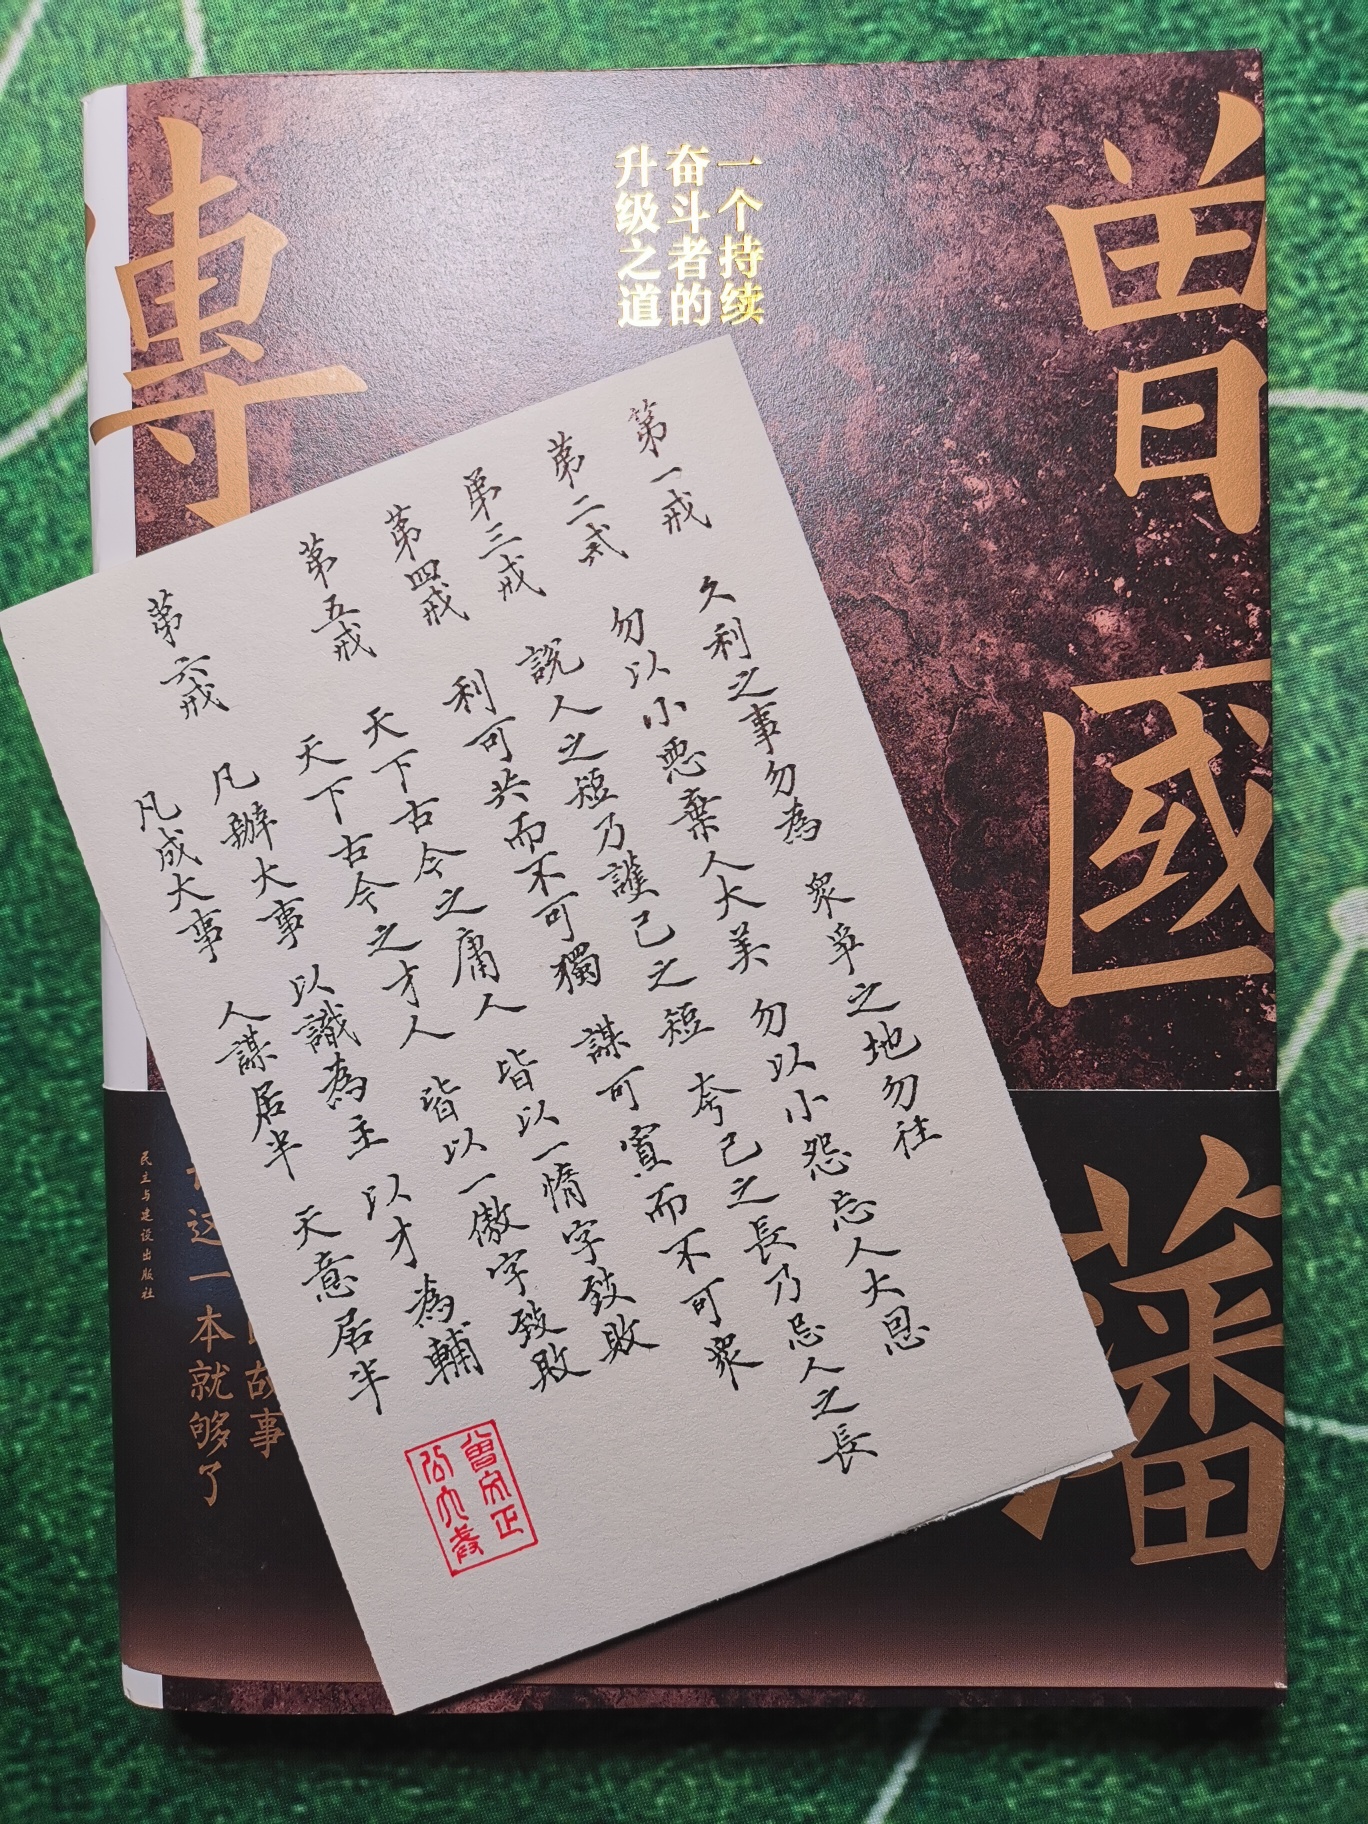 曾國藩
傳
一个持续
奋斗者的
升级之道
第一戒 久利之事勿為 衆爭之地勿往
第二戒 勿以小惡棄人大美 勿以小怨忘人大恩
第三戒 說人之短乃護己之短 夸己之長乃忌人之長
第四戒 利可共而不可獨 謀可寡而不可衆
第五戒 天下古今之庸人 皆以一惰字致敗
天下古今之才人 皆以一傲字致敗
第六戒 凡辦大事 以識為主 以才為輔
凡成大事 人謀居半 天意居半
曾文正
公六戒
故事
这一本就够了
民主与建设出版社